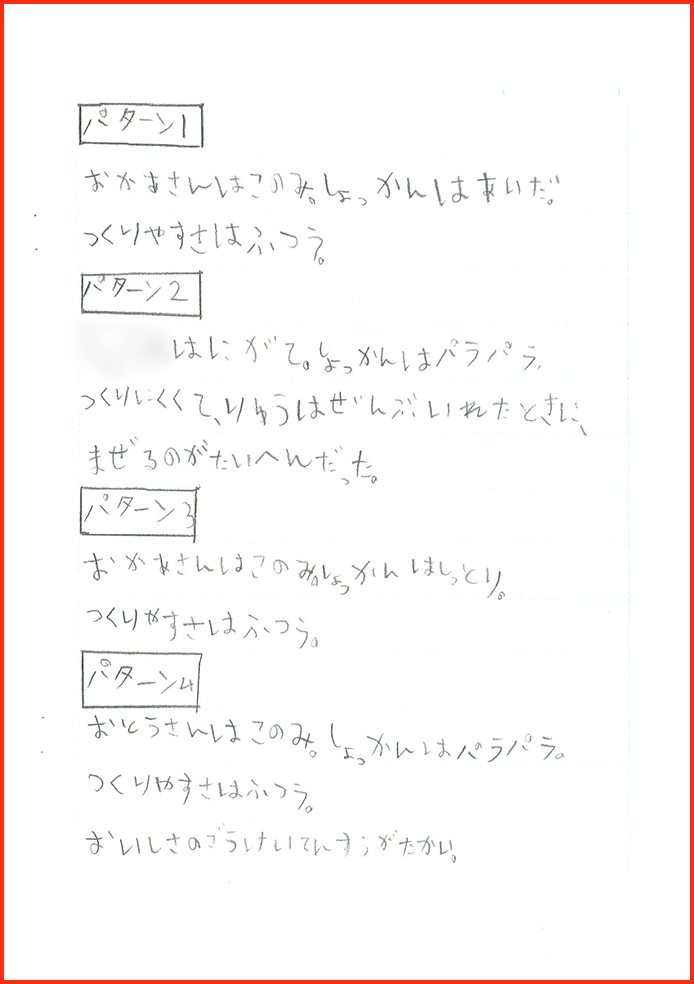 パターン1
おかあさんはこのみ。しょっかんはあいだ。
つくりやすさはふつう。
パターン2
はにがて。しょっかんはパラパラ、
つくりにくくて、りゆうはぜんぶいれたときに、
まぜるのがたいへんだった。
パターン3
おかあさんはこのみ。しょっかんはしっとり。
つくりやすさはふつう。
パターン4
おとうさんはこのみ。しょっかんはパラパラ。
つくりやすさはふつう。
おいしさのごうけいてんすうがたかい。